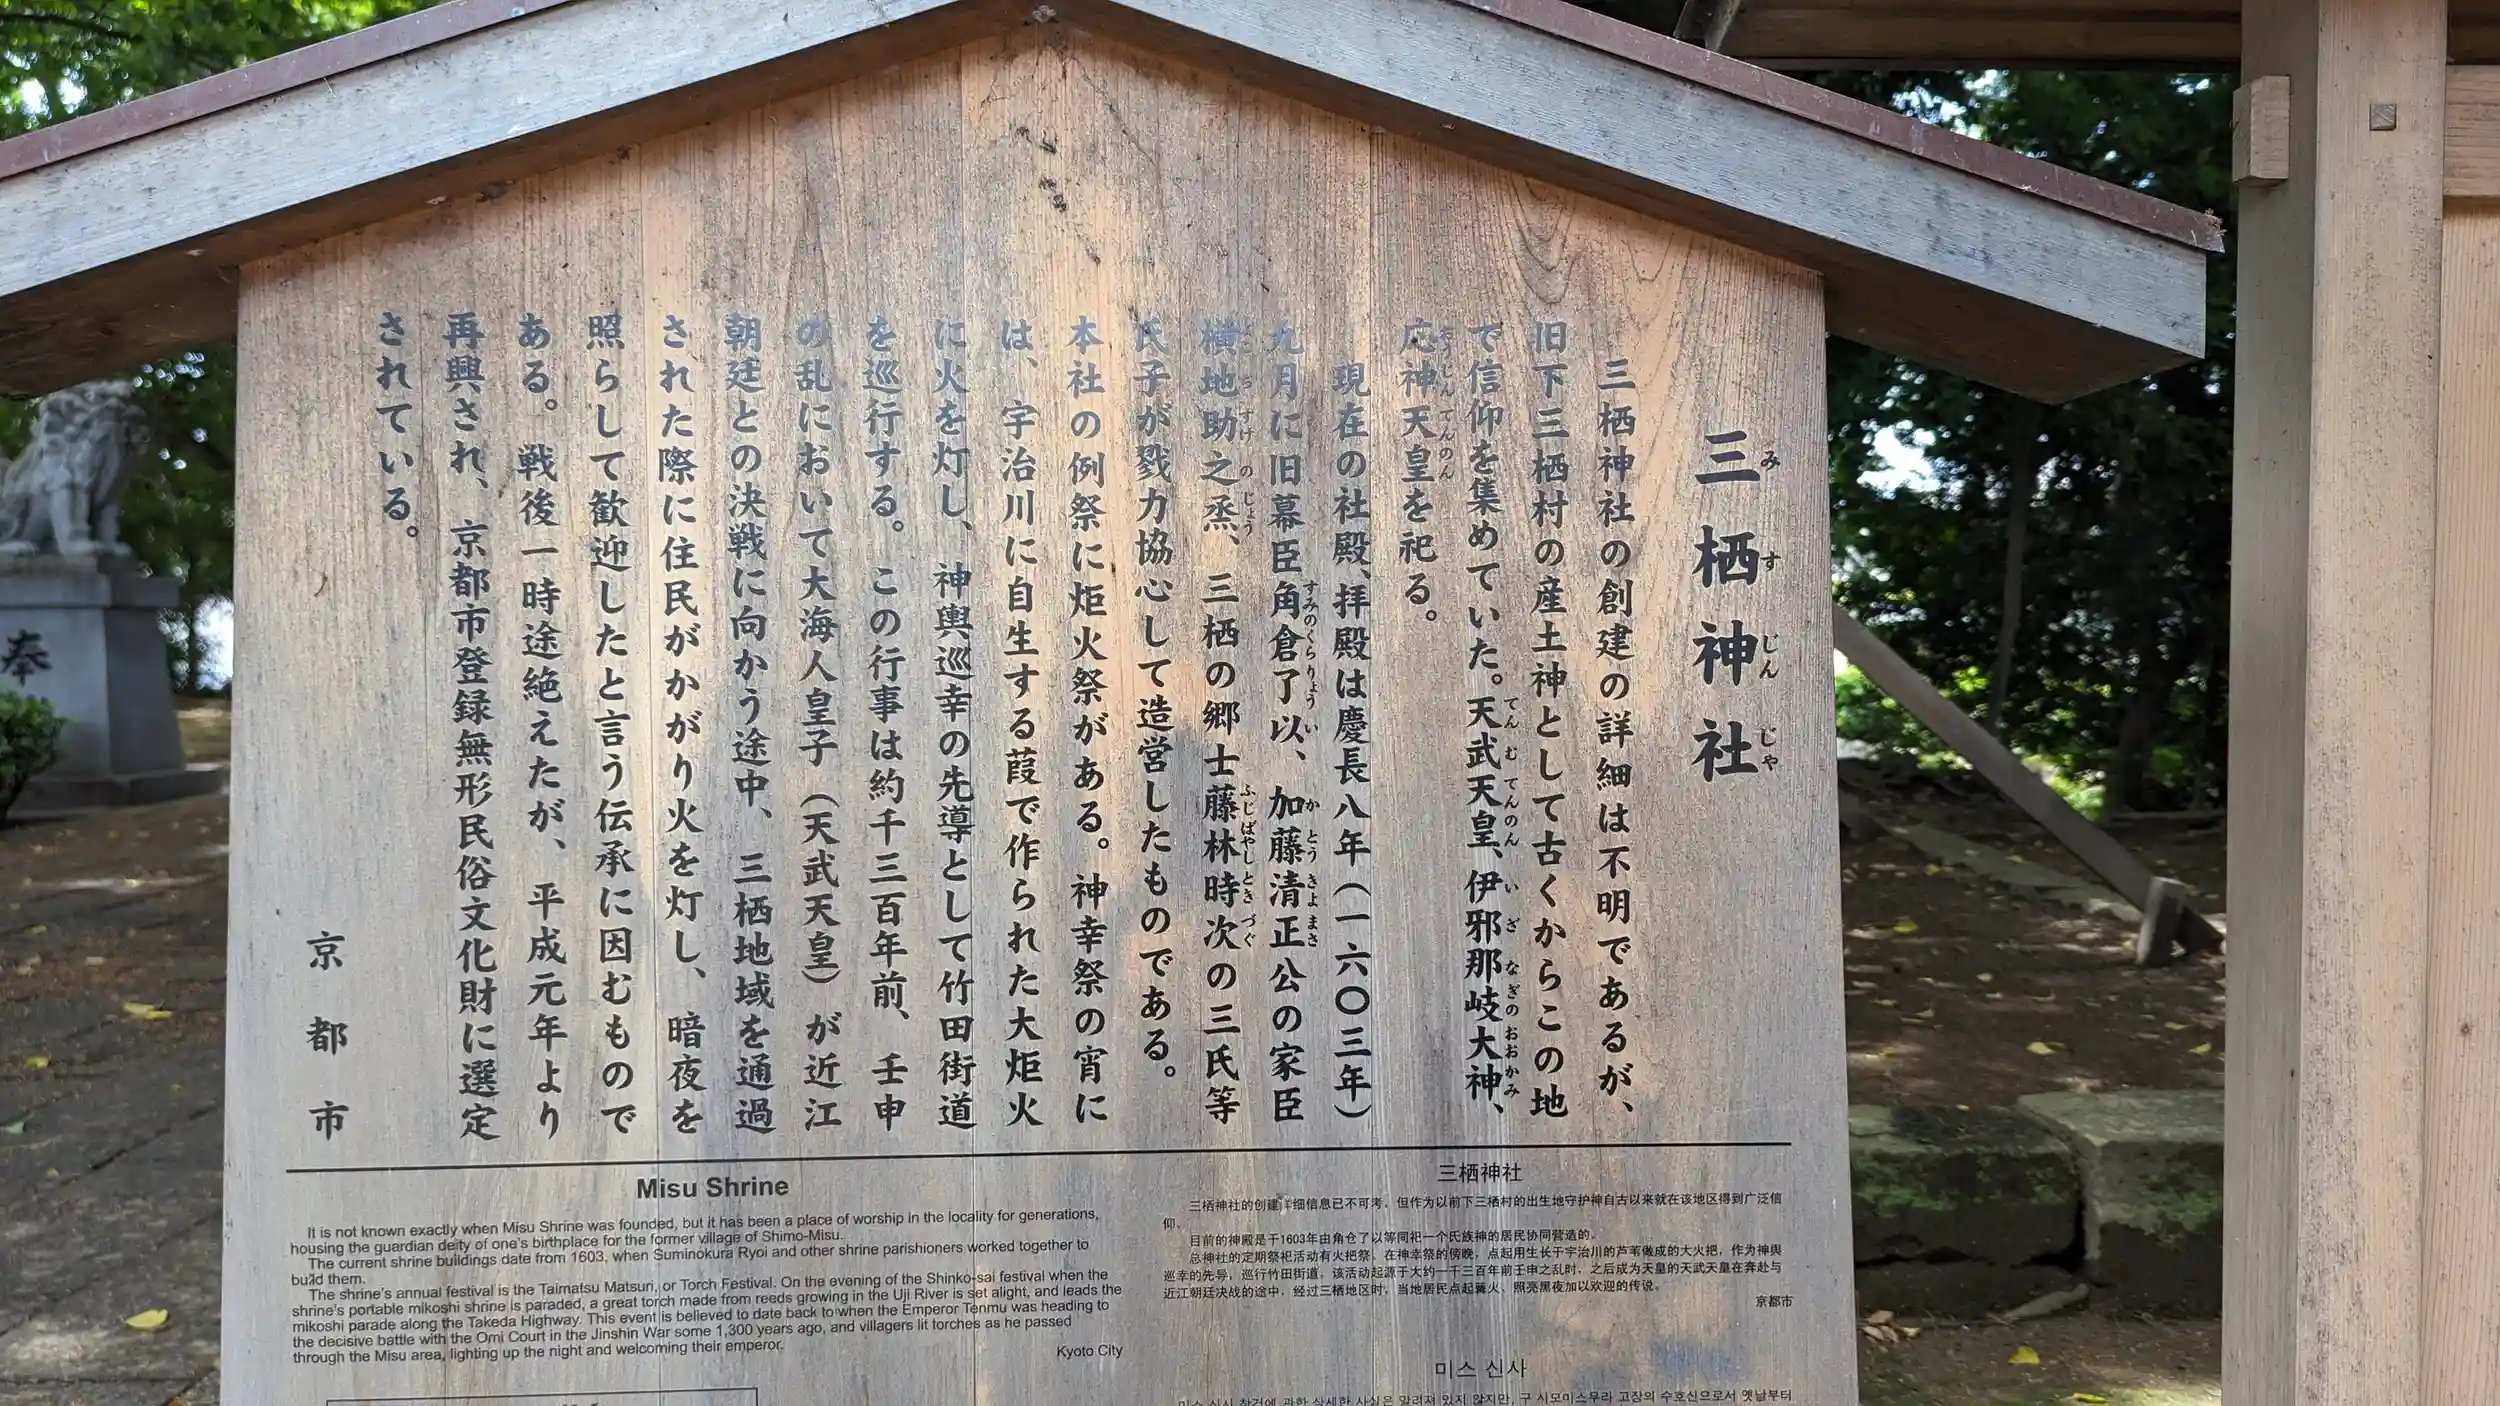 三栖神社
みすじんじゃ
三栖神社の創建の詳細は不明であるが、
旧下三栖村の産土神として古くからこの地
で信仰を集めていた。天武天皇、伊邪那岐大神、
てんむてんのん いざなぎのおおかみ
応神天皇を祀る。
おうじんてんのん
現在の社殿、拝殿は慶長八年(一六〇三年)
九月に旧幕臣角倉了以、加藤清正公の家臣
すみのくらりょうい かとうきよまさ
横地助之烝、三栖の郷士藤林時次の三氏等
よこちすけのじょう ふじばやしときづぐ
氏子が戮力協心して造営したものである。
本社の例祭に炬火祭がある。神幸祭の宵に
は、宇治川に自生する葭で作られた大炬火
に火を灯し、神輿巡幸の先導として竹田街道
を巡行する。この行事は約千三百年前、壬申
の乱において大海人皇子(天武天皇)が近江
朝廷との決戦に向かう途中、三栖地域を通過
された際に住民がかがり火を灯し、暗夜を
照らして歓迎したと言う伝承に因むもので
ある。戦後一時途絶えたが、平成元年より
再興され、京都市登録無形民俗文化財に選定
されている。
京都市
Misu Shrine
It is not known exactly when Misu Shrine was founded, but it has been a place of worship in the locality for generations,
housing the guardian deity of one's birthplace for the former village of Shimo-Misu.
The current shrine buildings date from 1603, when Suminokura Ryoi and other shrine parishioners worked together to
build them.
The shrine's annual festival is the Taimatsu Matsuri, or Torch Festival. On the evening of the Shinko-sai festival when the
shrine's portable mikoshi shrine is paraded, a great torch made from reeds growing in the Uji River is set alight, and leads the
mikoshi parade along the Takeda Highway. This event is believed to date back to when the Emperor Tenmu was heading to
the decisive battle with the Omi Court in the Jinshin War some 1,300 years ago, and villagers lit torches as he passed
through the Misu area, lighting up the night and welcoming their emperor.
Kyoto City
三栖神社
三栖神社的创建详细信息已不可考，但作为以前下三栖村的出生地守护神自古以来就在该地区得到广泛信
仰。
目前的神殿是于1603年由角仓了以等同祀一个氏族神的居民协同营造的。
总神社的定期祭祀活动有火把祭。在神幸祭的傍晚，点起用生长于宇治川的芦苇做成的大火把，作为神舆
巡幸的先导，巡行竹田街道。该活动起源于大约一千三百年前壬申之乱时，之后成为天皇的天武天皇在奔赴与
近江朝廷决战的途中，经过三栖地区时，当地居民点起篝火、照亮黑夜加以欢迎的传说。
京都市
미스 신사
미스 신사 창건에 관한 상세한 사실은 알려져 있지 않지만, 구 시모미스무라 고장의 수호신으로서 옛날부터
奉